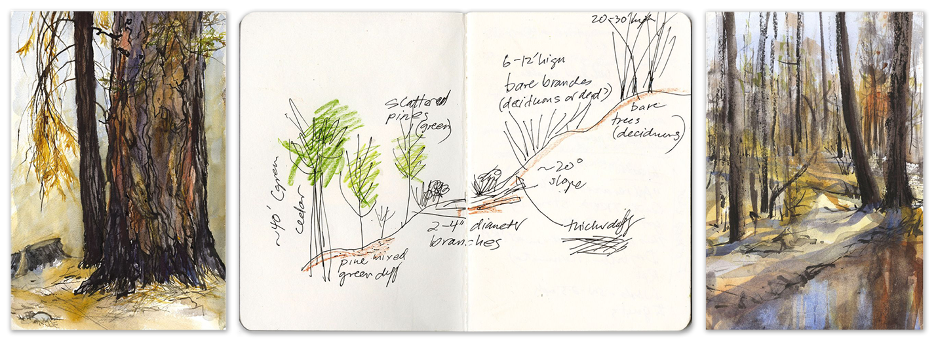 scattered
pines
(green)
~40' (green
cedar
pine mixed
2-4" diameter
branches
20-30' high
6-12' high
bare branches
(deciduous or dead?)
bare
trees
(deciduous)
~20°
slope